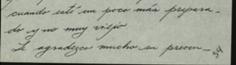 cuando esté un poco más prepara-
do y no muy viejo
Le agradezco mucho su preocu-